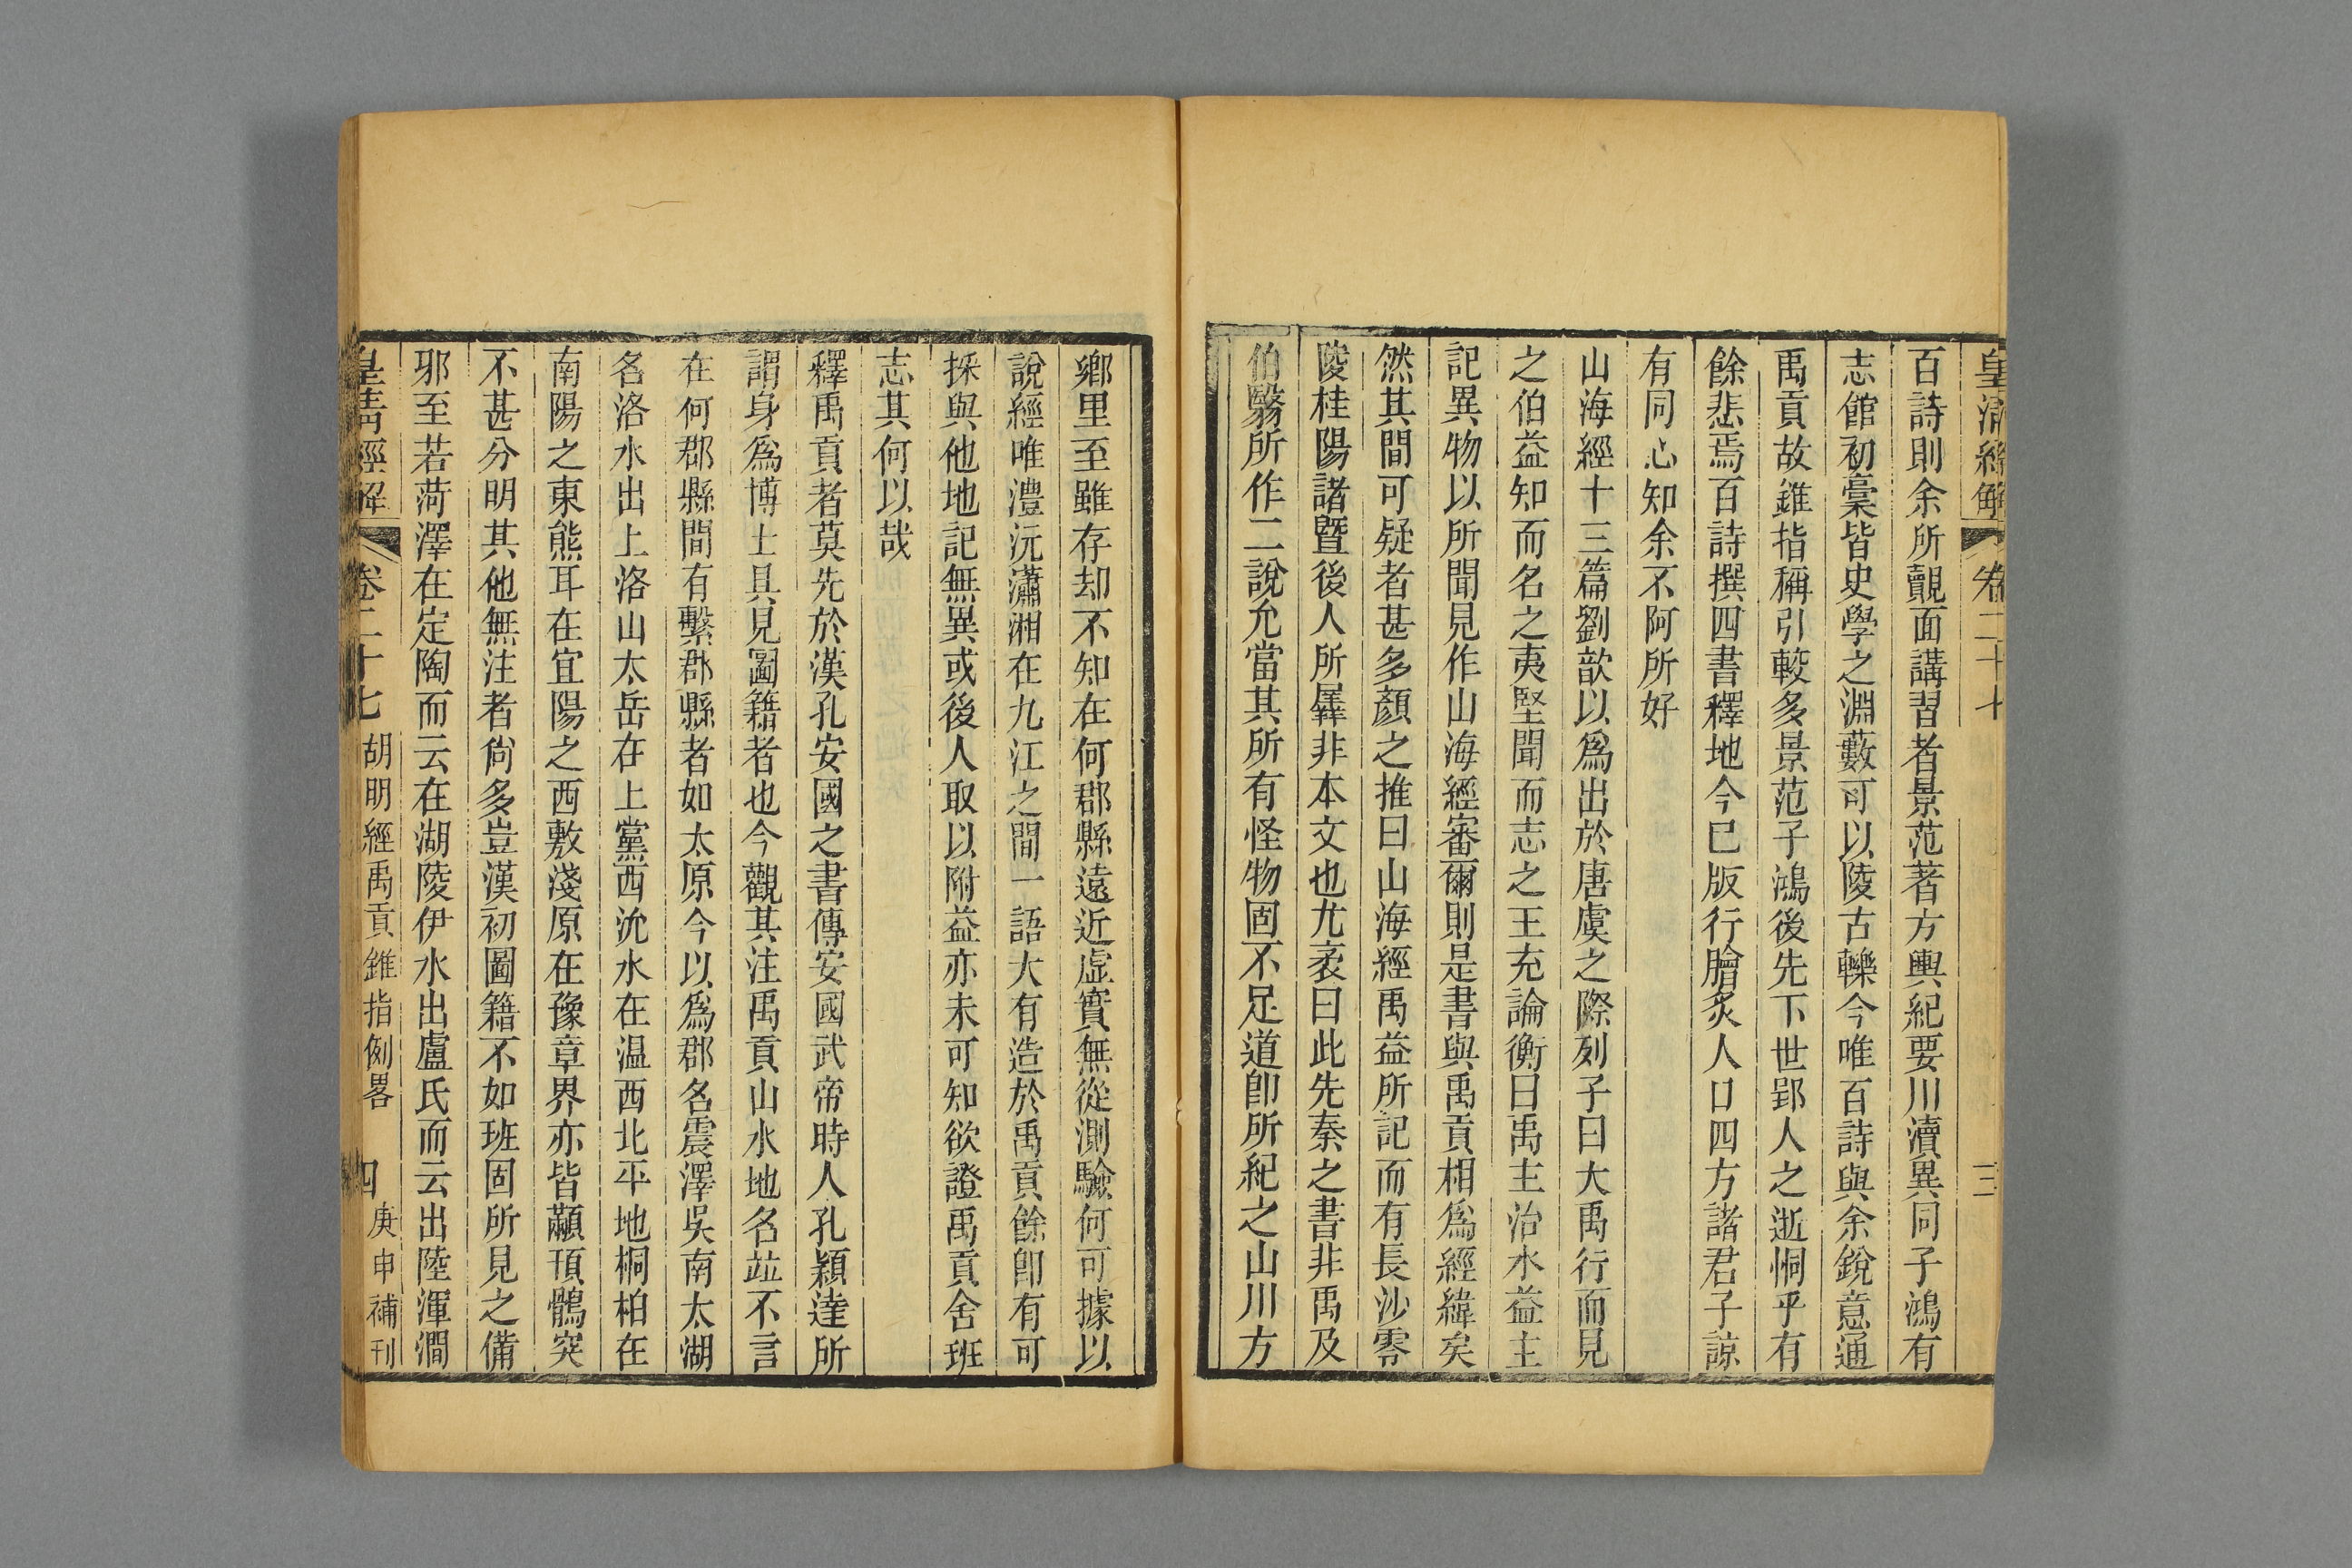 皇清經解 卷二十七 三
百詩則余所覿面講習者景范著方輿紀要川瀆異同子鴻有
志館初稾皆史學之淵藪可以陵古轢今唯百詩與余銳意通
禹貢故錐指稱引較多景范子鴻後先下世郢人之逝恫乎有
餘悲焉百詩撰四書釋地今已版行膾炙人口四方諸君子諒
有同心知余不阿所好
山海經十三篇劉歆以爲出於唐虞之際列子曰大禹行而見
之伯益知而名之夷堅聞而志之王充論衡曰禹主治水益主
記異物以所聞見作山海經審爾則是書與禹貢相爲經緯矣
然其間可疑者甚多顏之推曰山海經禹益所記而有長沙零
陵桂陽諸暨後人所羼非本文也尤袤曰此先秦之書非禹及
伯翳所作二說允當其所有怪物固不足道卽所紀之山川方
鄉里至雖存却不知在何郡縣遠近虛實無從測驗何可據以
說經唯澧沅瀟湘在九江之間一語大有造於禹貢餘卽有可
採與他地記無異或後人取以附益亦未可知欲證禹貢舍班
志其何以哉
釋禹貢者莫先於漢孔安國之書傳安國武帝時人孔穎達所
謂身爲博士具見圖籍者也今觀其注禹貢山水地名竝不言
在何郡縣間有繫郡縣者如太原今以爲郡名震澤吳南太湖
名洛水出上洛山太岳在上黨西沇水在温西北平地桐柏在
南陽之東熊耳在宜陽之西敷淺原在豫章界亦皆顢頇鶻突
不甚分明其他無注者尙多豈漢初圖籍不如班固所見之備
邪至若菏澤在定陶而云在湖陵伊水出盧氏而云出陸渾澗
皇清經解 卷二十七 胡明經禹貢錐指例畧 四 庚申補刊